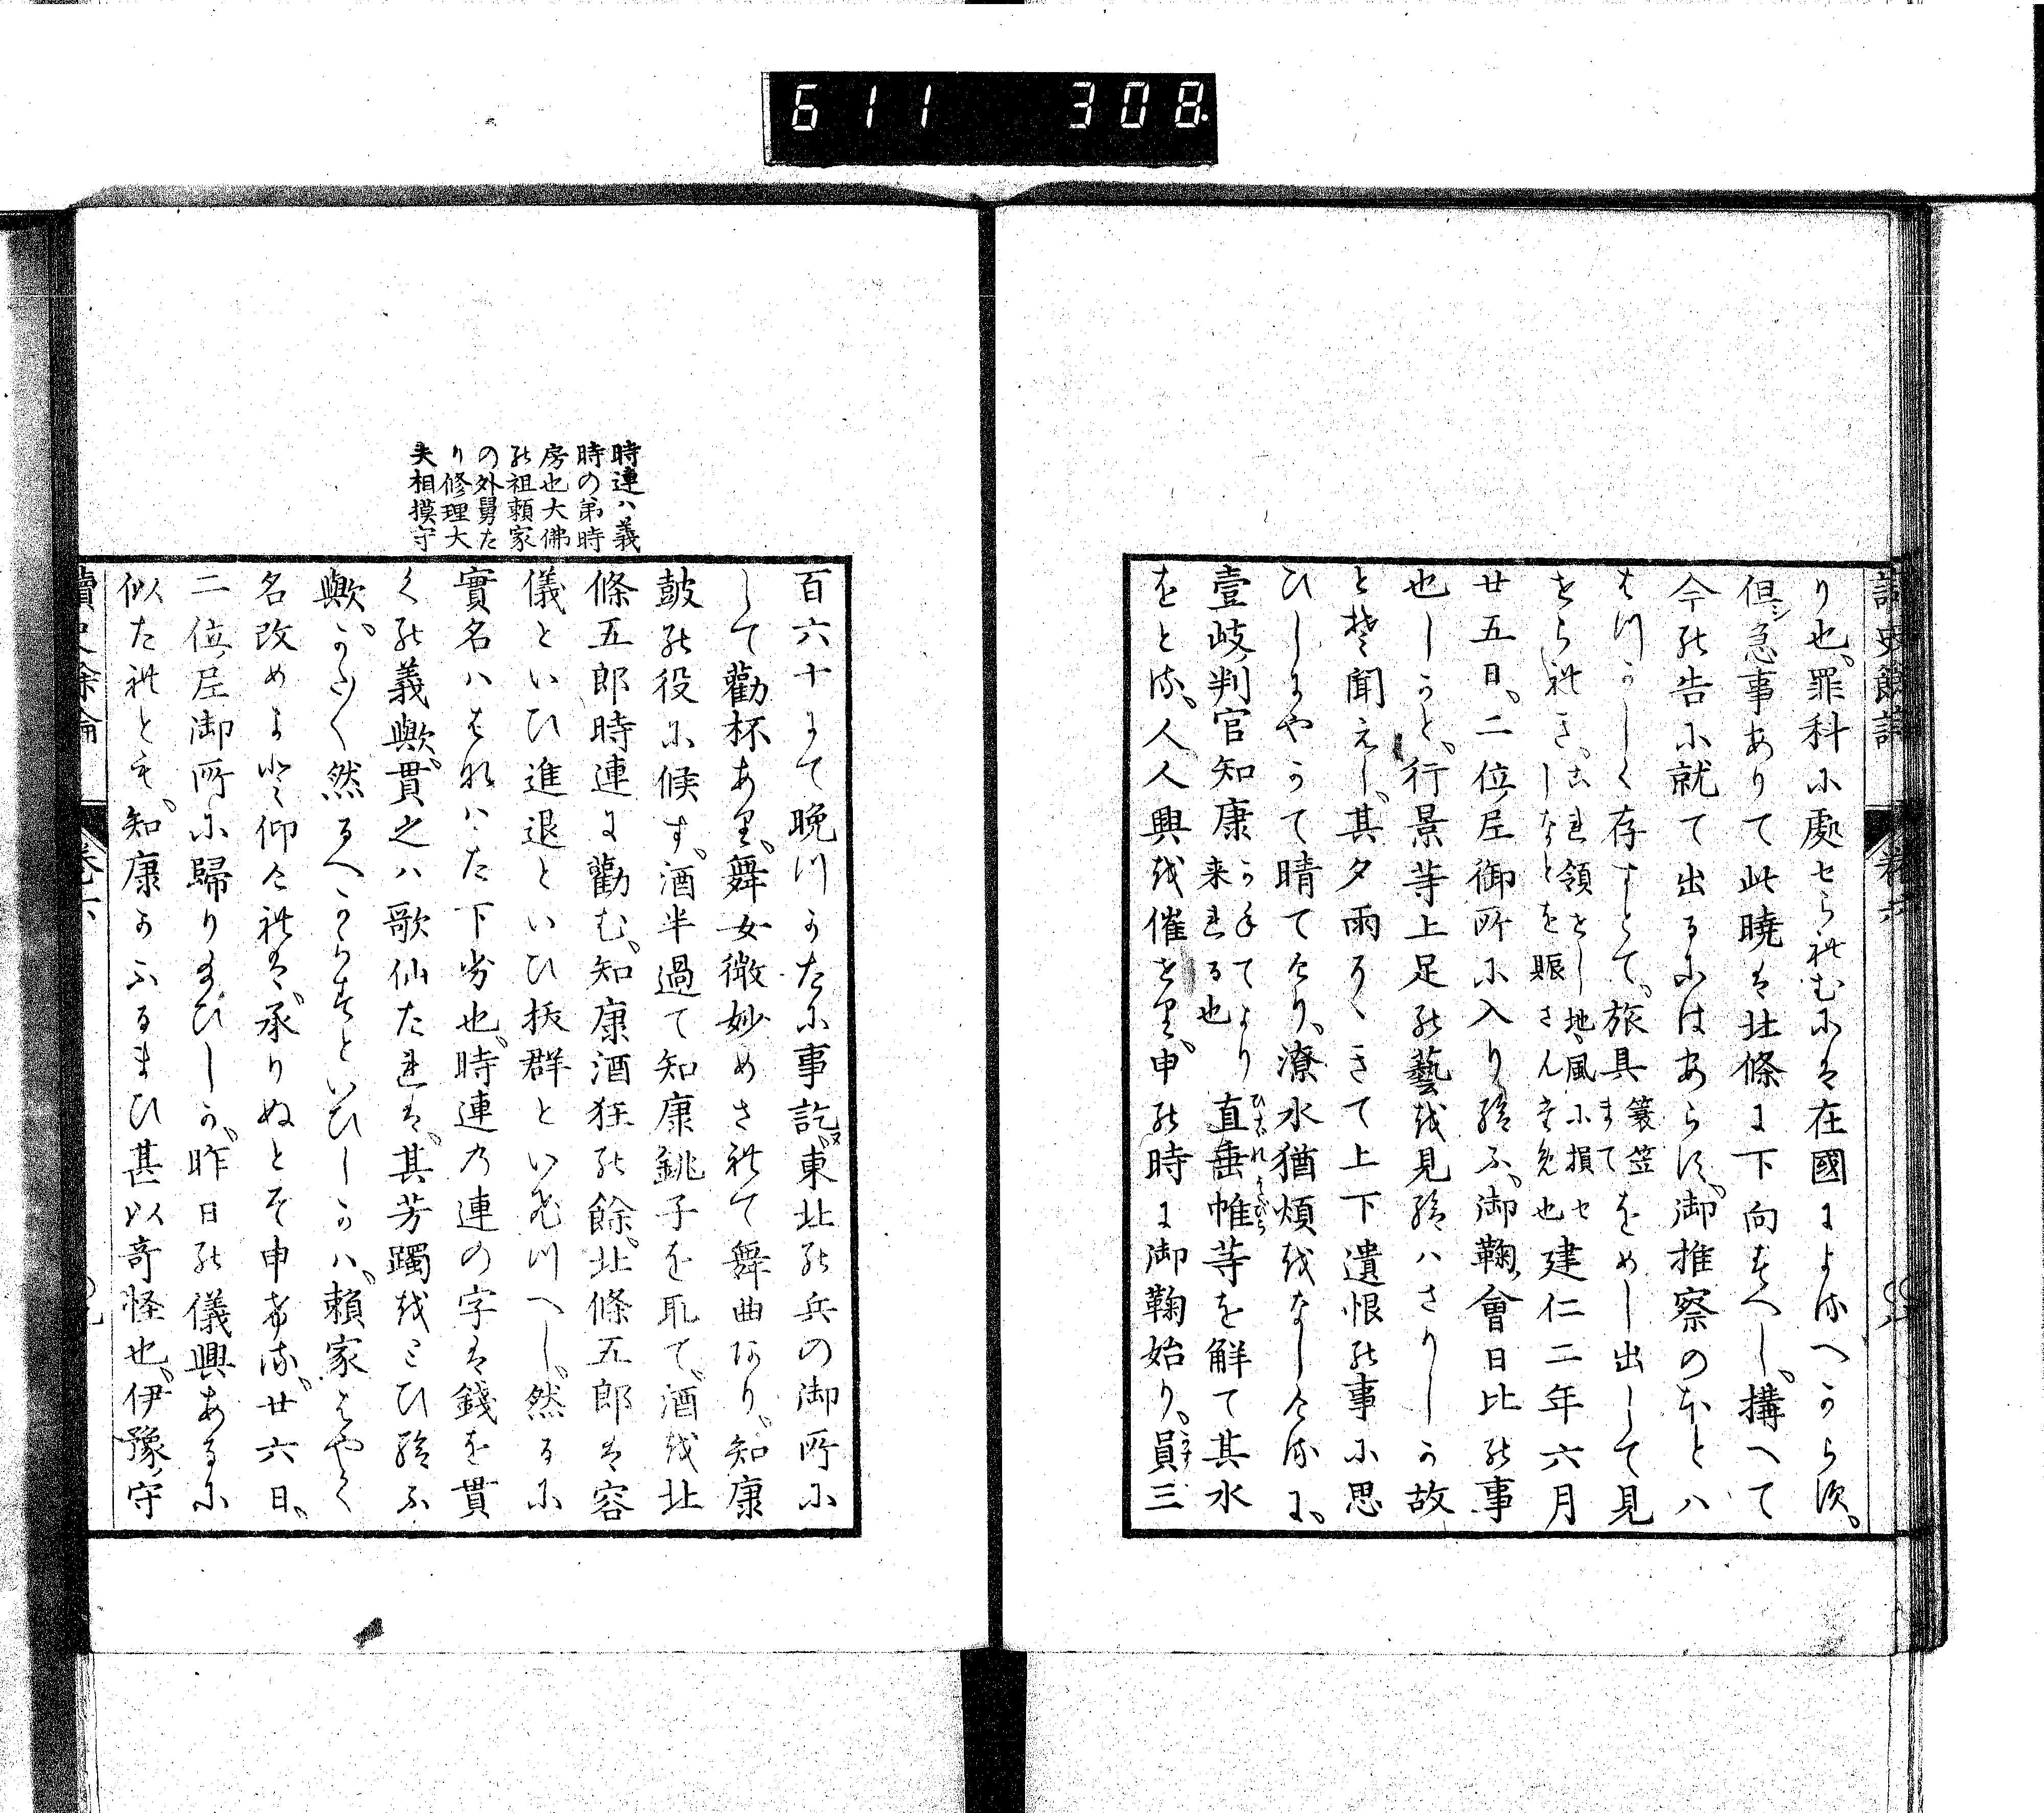 611 308
讀史餘論 卷六
り也、罪科に處せられむには在國によるへからす、
但シ急事ありて此曉は北條に下向すへし、構へて
今の告に就て出るにはあらす、御推察のほとハ
はつかしく存すとて、旅具簑笠まてをめし出して見
せられき、これ領せし地、風に損せしなとを賑さんため也建仁二年六月
廿五日、二位ノ尼御所に入り給ふ、御鞠ノ會日比の事
也しかと、行景等上足の藝を見給ハさりしか故
とそ聞えし、其夕雨ふりきて上下遺恨の事に思
ひしにやかて晴てけり、潦水猶煩をなしけるに、
壹岐ノ判官知康かねてより来れる也直垂帷等を解て其水
をとる、人人興を催せり、申の時に御鞠始り、員三
時連ハ義
時の弟時
房也大佛
の祖頼家
の外舅た
り修理大
夫相摸守
百六十にて晩つかたに事訖ヌ、東北の兵の御所に
して勸杯あり、舞女微妙めされて舞曲あり、知康
皷の役に候す、酒半過て知康銚子を取て、酒を北
條五郎時連に勸む、知康酒狂の餘、北條五郎は容
儀といひ進退といひ拔群といひつへし、然るに
實名ハはなハた下劣也、時連の連の字は錢を貫
くの義歟、貫之ハ歌仙たれは、其芳躅を追ひ給ふ
歟、かたく然るへからすといひしかハ、賴家はやく
名改めよと仰けれは、承りぬとそ申ける、廿六日、
二位ノ尼御所に歸り給ひしか、昨日の儀興あるに
似たれとも、知康かふるまひ甚以奇怪也、伊豫ノ守
讀史餘論 卷六